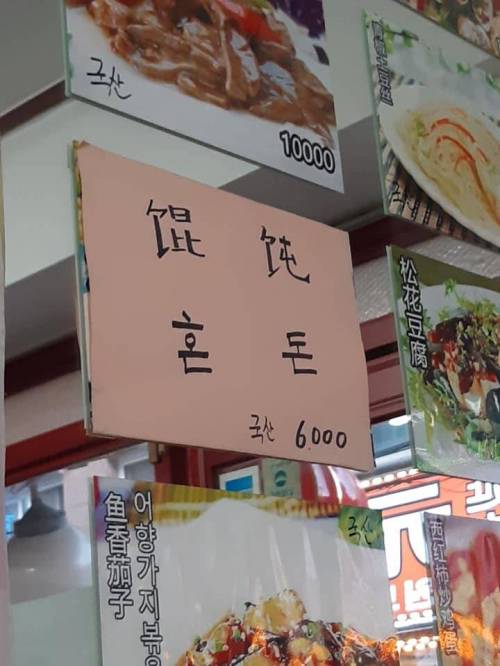 국산
10000
土豆丝
국산
馄饨
혼돈
국산 6000
松花豆腐
鱼香茄子
어향가지볶음
국산
西红柿炒鸡蛋